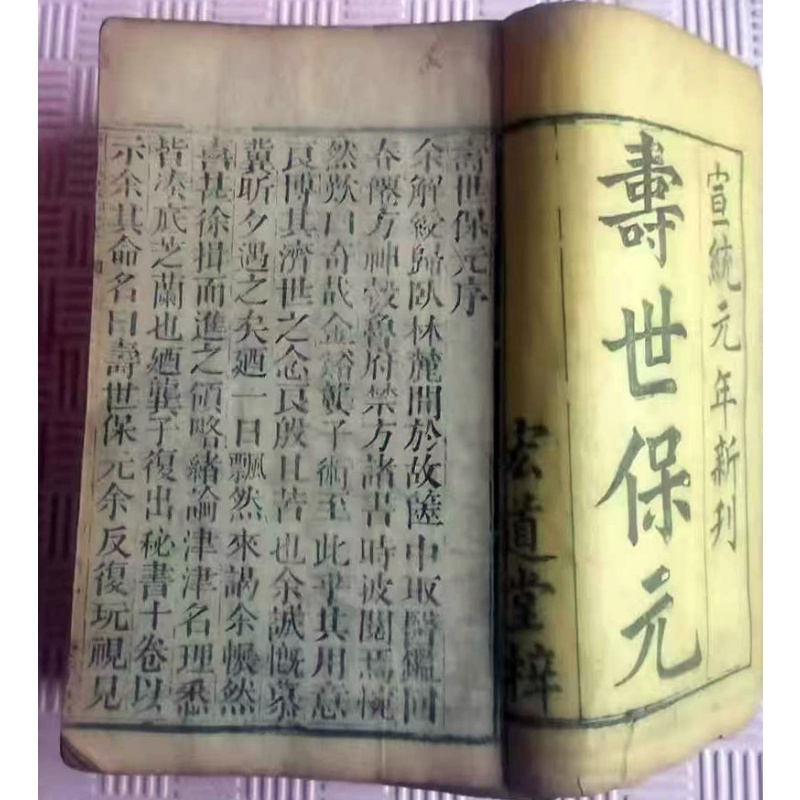 宣統元年新刊
壽世保元
宏道堂梓
壽世保元序
余解綬歸臥林麓間於故篋中取醫鑑回
春僊方神彀魯府禁方諸書時披閱焉愾
然歎曰奇哉金谿龔子術至此乎其用意
良博其濟世之念良殷且苦也余誠慨慕
冀昕夕遇之矣廼一日飄然來謁余輾然
喜甚徐揖而進之領略緒論津津名理悉
皆湊底芝蘭也廼龔子復出秘書十卷以
示余其命名曰壽世保元余反復玩視見